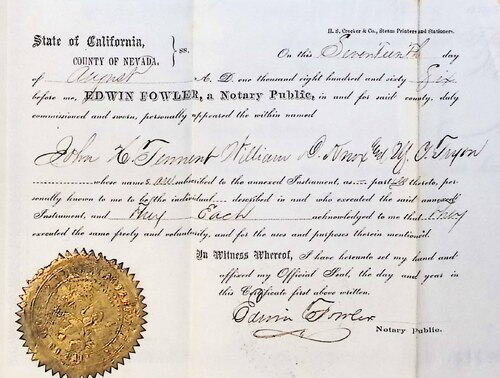 H. S. Crocker & Co., Steam Printers and Stationers.
State of California,
COUNTY OF NEVADA. } ss.
On this Seventeenth day
of August A. D. one thousand eight hundred and sixty Six
before me, EDWIN FOWLER, a Notary Public, in and for said county, duly
commissioned and sworn, personally appeared the within named
John C. Tennent William D. Knox Geo W. O. Tryon
whose names are subscribed to the annexed Instrument, as parties thereto, per-
sonally known to me to be the individual described in and who executed the said annexed
Instrument, and They Each acknowledged to me that they
executed the same freely and voluntarily, and for the uses and purposes therein mentioned.
In Witness Whereof, I have hereunto set my hand and
affixed my Official Seal, the day and year in
this Certificate first above written.
Edwin Fowler
Notary Public.